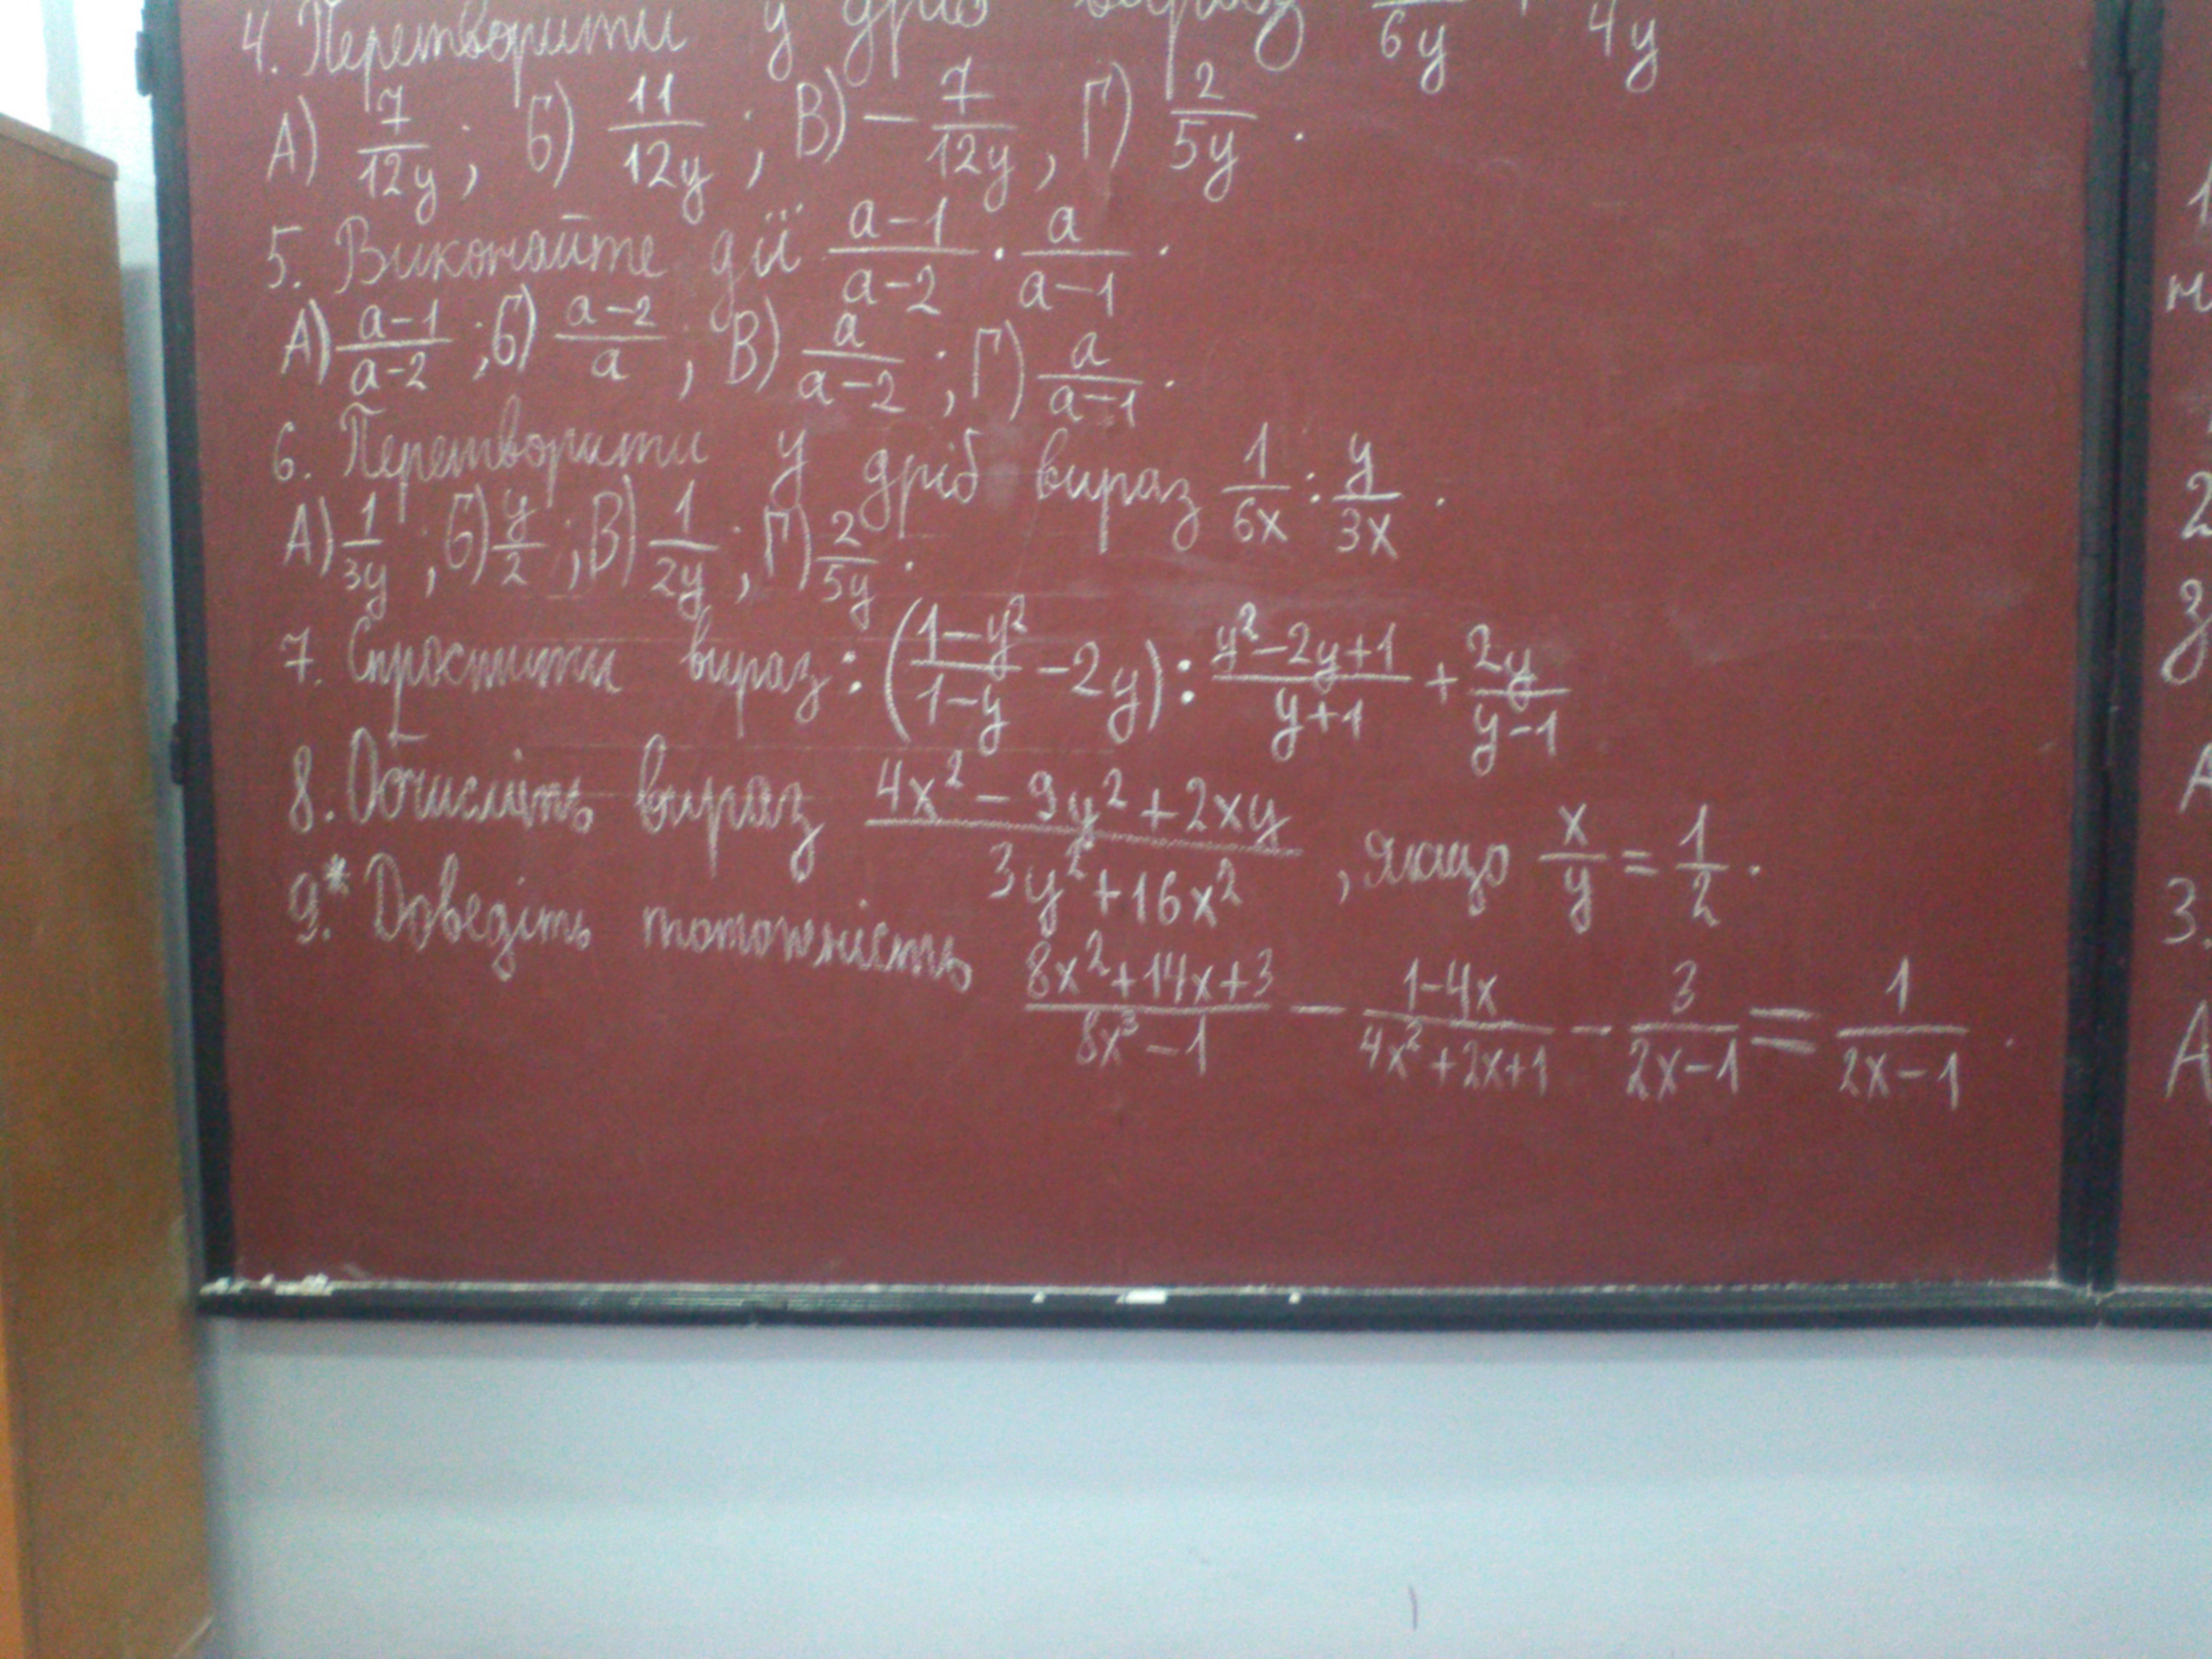 4. Перетворити у дріб вираз 6y 4y
А) 7/12y ; Б) 11/12y ; В) − 7/12y , Г) 2/5y .
5. Виконайте дії (a−1)/(a−2) · a/(a−1) .
А) (a−1)/(a−2) ; Б) (a−2)/a , В) a/(a−2) ; Г) a/(a−1) .
6. Перетворити у дріб вираз 1/6x : y/3x .
А) 1/3y ; Б) y/2 ; В) 1/2y ; Г) 2/5y .
7. Спростити вираз: ((1−y²)/(1−y) − 2y) : (y²−2y+1)/(y+1) + 2y/(y−1)
8. Обчисліть вираз (4x² − 9y² + 2xy)/(3y² + 16x²) , якщо x/y = 1/2 .
9.* Доведіть тотожність (8x²+14x+3)/(8x³−1) − (1−4x)/(4x²+2x+1) − 3/(2x−1) = 1/(2x−1) .
1
2
3
А
3.
А